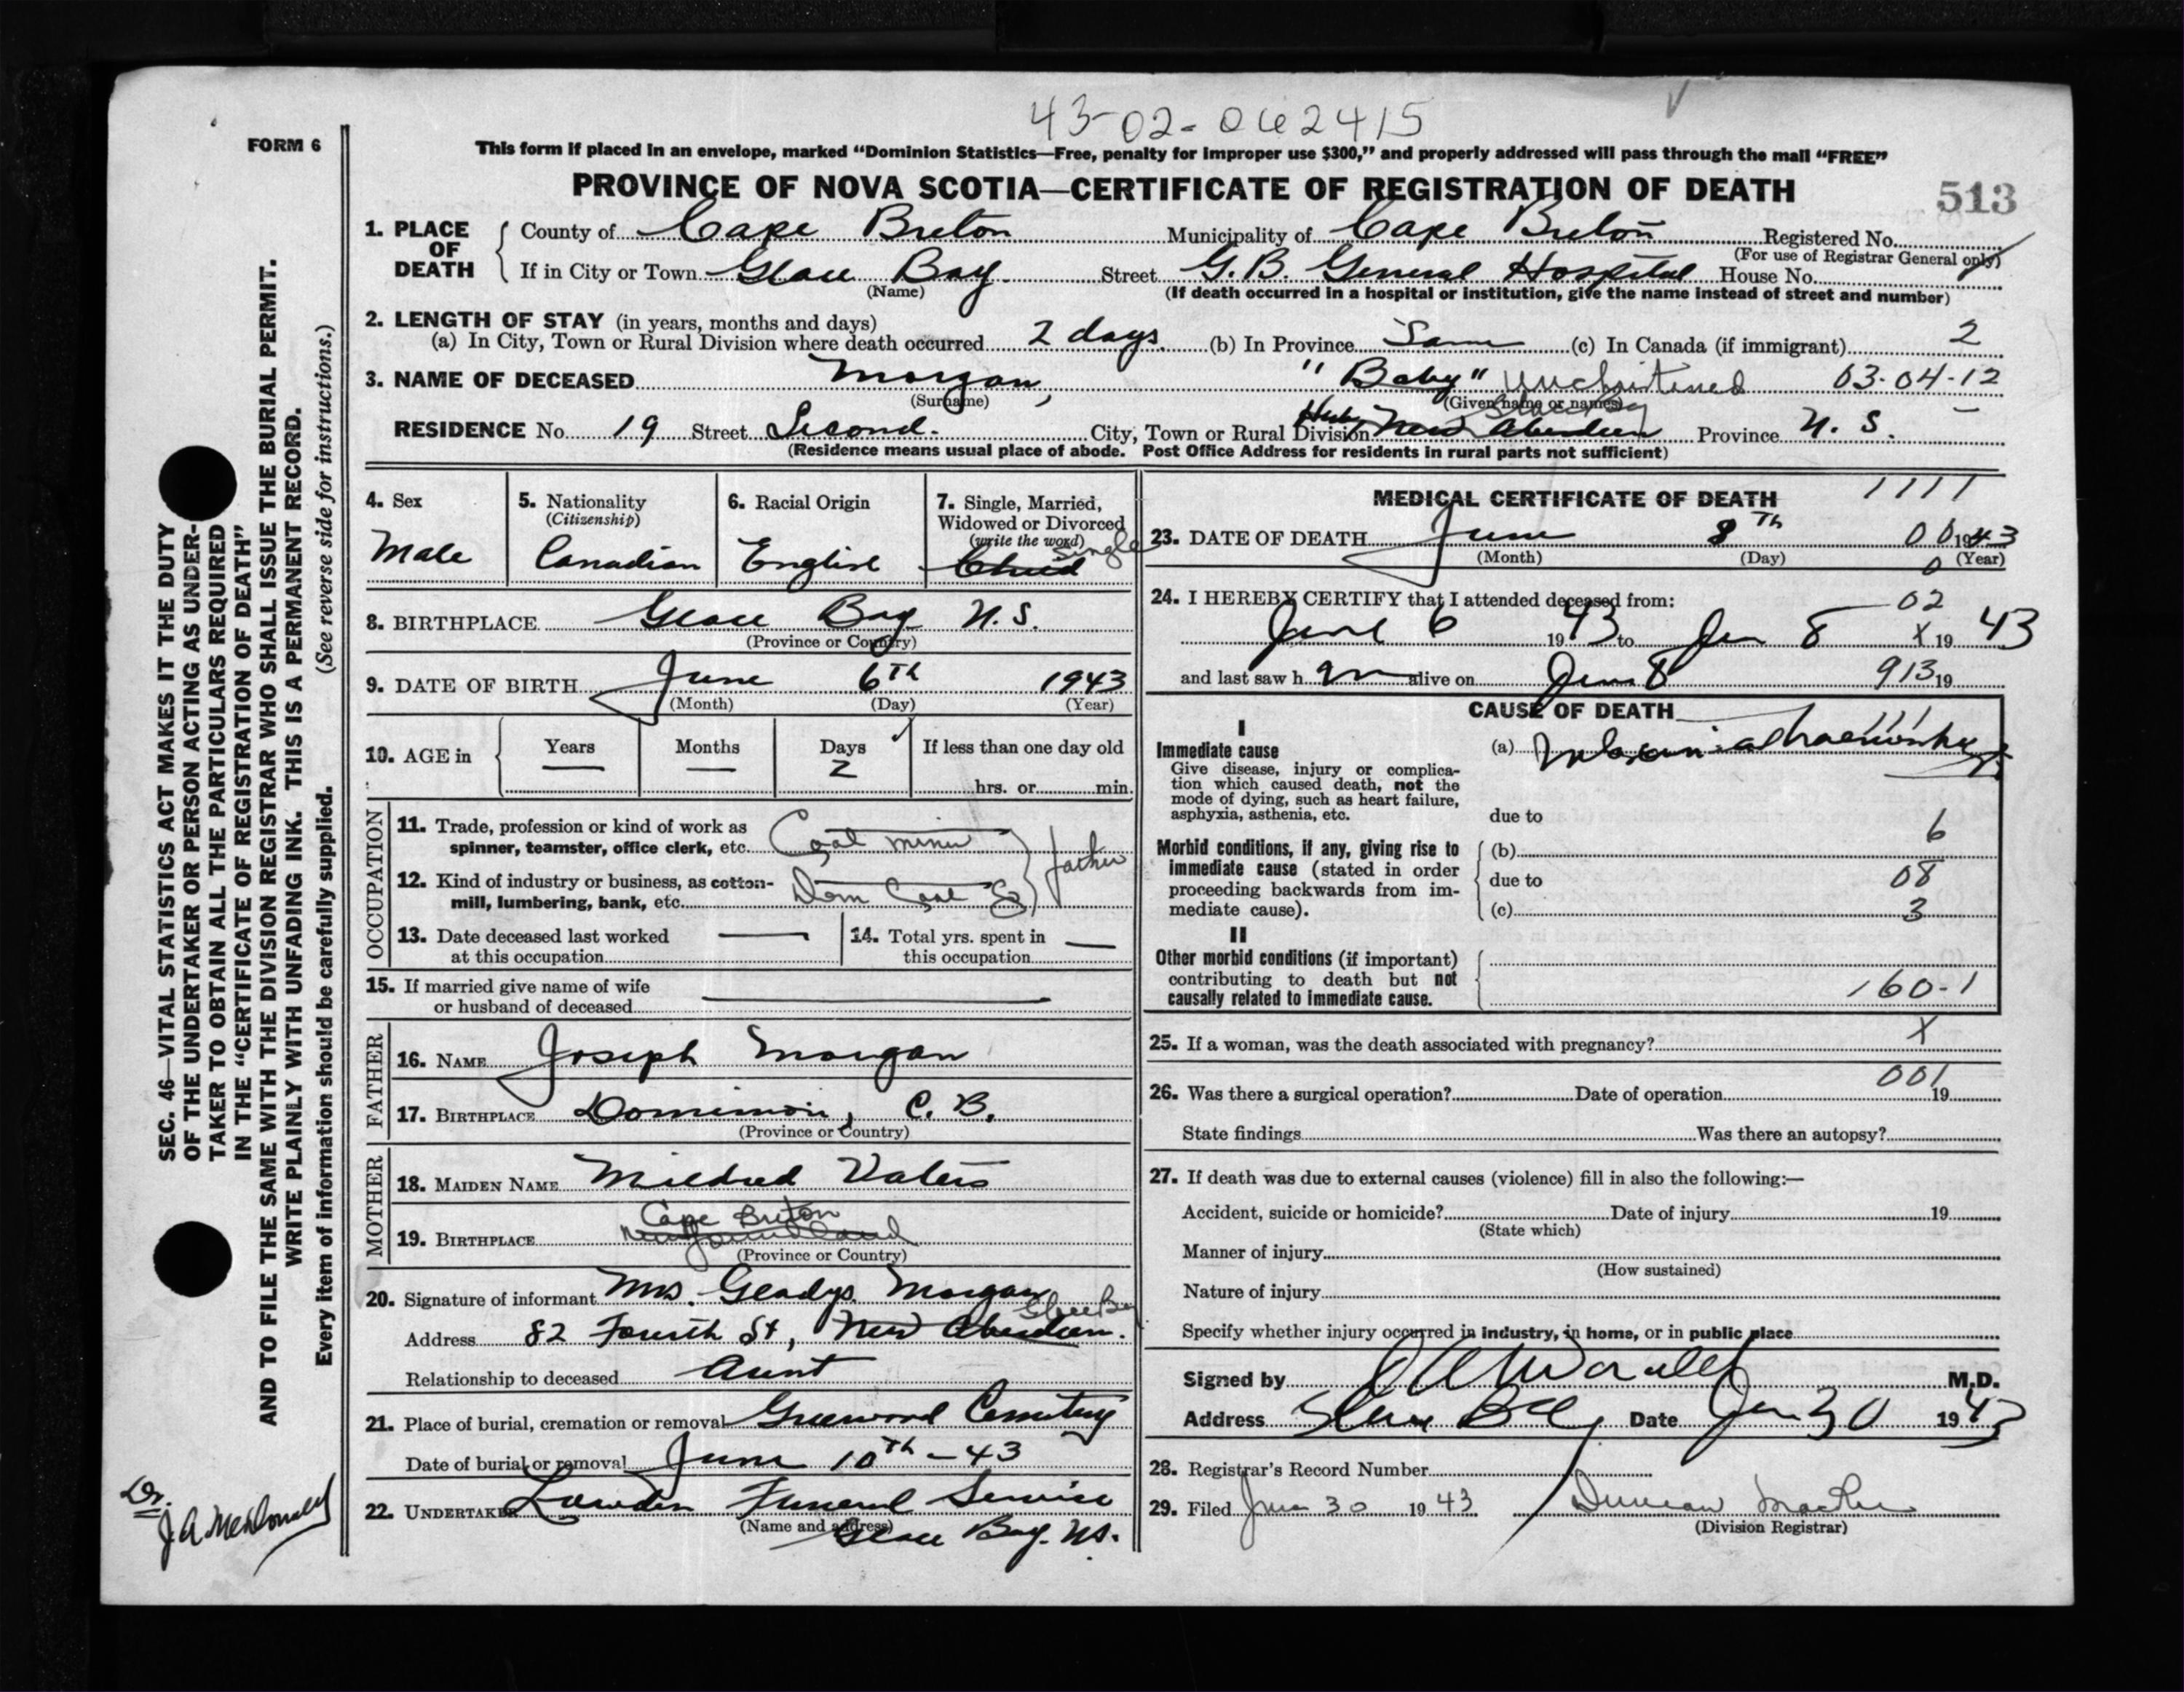 43-02-062415
FORM 6
This form if placed in an envelope, marked “Dominion Statistics—Free, penalty for improper use $300,” and properly addressed will pass through the mail “FREE”
PROVINCE OF NOVA SCOTIA—CERTIFICATE OF REGISTRATION OF DEATH
513
1. PLACE OF DEATH
County of Cape Breton Municipality of Cape Breton Registered No.
(For use of Registrar General only)
If in City or Town Glace Bay Street G.B. General Hospital House No.
(Name) (If death occurred in a hospital or institution, give the name instead of street and number)
2. LENGTH OF STAY (in years, months and days)
(a) In City, Town or Rural Division where death occurred 2 days (b) In Province Same (c) In Canada (if immigrant) 2
3. NAME OF DECEASED Morgan, "Baby" Unchristened 03-04-12
(Surname) (Given name or names)
Glace Bay
RESIDENCE No. 19 Street Second. City, Town or Rural Division New Aberdeen Province N. S.
(Residence means usual place of abode. Post Office Address for residents in rural parts not sufficient)
4. Sex
Male
5. Nationality
(Citizenship)
Canadian
6. Racial Origin
English
7. Single, Married,
Widowed or Divorced
(write the word)
Single
Child
8. BIRTHPLACE Glace Bay N.S.
(Province or Country)
9. DATE OF BIRTH June 6th 1943
(Month) (Day) (Year)
10. AGE in
Years Months Days If less than one day old
— — 2
hrs. or min.
OCCUPATION
11. Trade, profession or kind of work as
spinner, teamster, office clerk, etc. Coal miner
father
12. Kind of industry or business, as cotton-
mill, lumbering, bank, etc. Dom Coal Co
13. Date deceased last worked
at this occupation
14. Total yrs. spent in
this occupation
15. If married give name of wife
or husband of deceased
FATHER
16. NAME Joseph Morgan
17. BIRTHPLACE Dominion, C. B.
(Province or Country)
MOTHER
18. MAIDEN NAME Mildred Vaters
Cape Breton
19. BIRTHPLACE Newfoundland
(Province or Country)
20. Signature of informant Mrs. Gladys Morgan
Glace Bay
Address 82 Fourth St, New Aberdeen.
Relationship to deceased Aunt
21. Place of burial, cremation or removal Greenwood Cemetery
Date of burial or removal June 10th - 43
22. UNDERTAKER Lowden Funeral Service
(Name and address)
Glace Bay. N.S.
MEDICAL CERTIFICATE OF DEATH 1111
23. DATE OF DEATH June 8th 00 1943
(Month) (Day) (Year)
0
24. I HEREBY CERTIFY that I attended deceased from:
02
June 6 1943 to Jun 8 X 19 43
and last saw h m alive on Jun 8 913 19
CAUSE OF DEATH
111
I
Immediate cause
Give disease, injury or complica-
tion which caused death, not the
mode of dying, such as heart failure,
asphyxia, asthenia, etc.
(a)
due to
6
Morbid conditions, if any, giving rise to
immediate cause (stated in order
proceeding backwards from im-
mediate cause).
(b)
due to
08
(c) 3
II
Other morbid conditions (if important)
contributing to death but not
causally related to immediate cause.
160-1
25. If a woman, was the death associated with pregnancy? X
001
26. Was there a surgical operation? Date of operation 19
State findings Was there an autopsy?
27. If death was due to external causes (violence) fill in also the following:—
Accident, suicide or homicide? Date of injury 19
(State which)
Manner of injury
(How sustained)
Nature of injury
Specify whether injury occurred in industry, in home, or in public place
Signed by M.D.
Address Glace Bay Date Jun 30 1943
28. Registrar's Record Number
29. Filed June 30 1943 Duncan
(Division Registrar)
SEC. 46—VITAL STATISTICS ACT MAKES IT THE DUTY
OF THE UNDERTAKER OR PERSON ACTING AS UNDER-
TAKER TO OBTAIN ALL THE PARTICULARS REQUIRED
IN THE “CERTIFICATE OF REGISTRATION OF DEATH”
AND TO FILE THE SAME WITH THE DIVISION REGISTRAR WHO SHALL ISSUE THE BURIAL PERMIT.
WRITE PLAINLY WITH UNFADING INK. THIS IS A PERMANENT RECORD.
Every item of information should be carefully supplied. (See reverse side for instructions.)
Dr.
J. A. McDonald